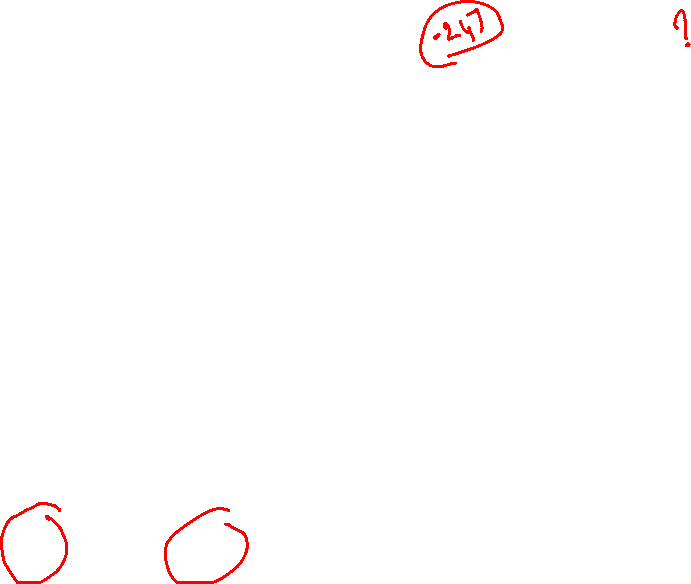 -247 ?